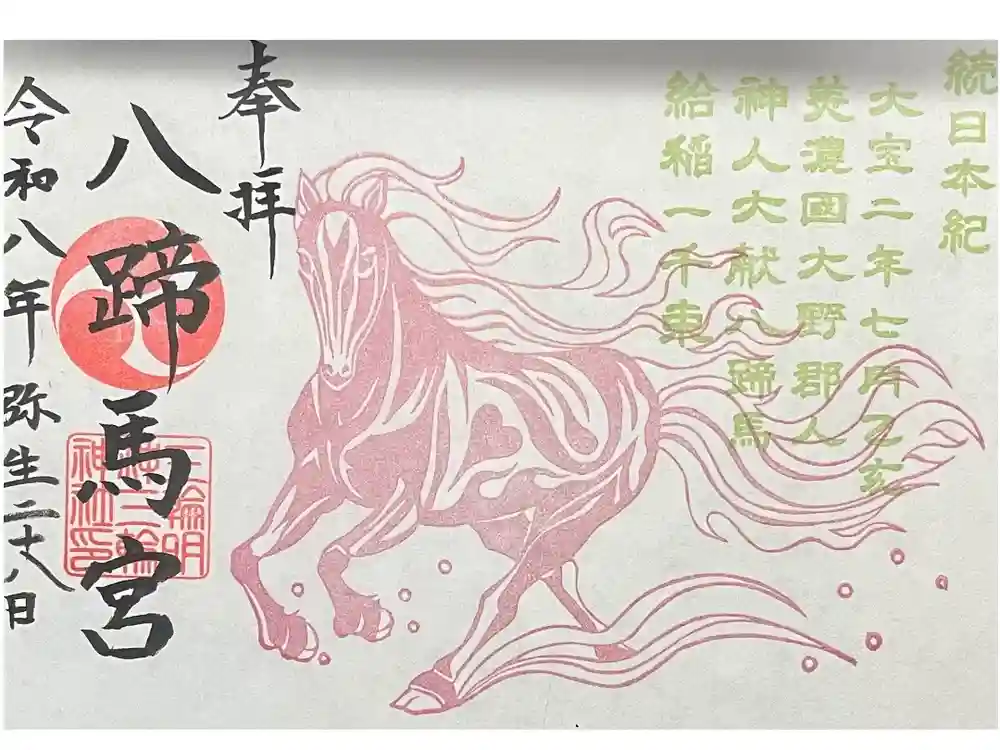 続日本紀
大宝二年七月乙亥
美濃国大野郡人
神人大献八蹄馬
給稲一千束
奉拝
八蹄馬宮
令和八年弥生二十八日